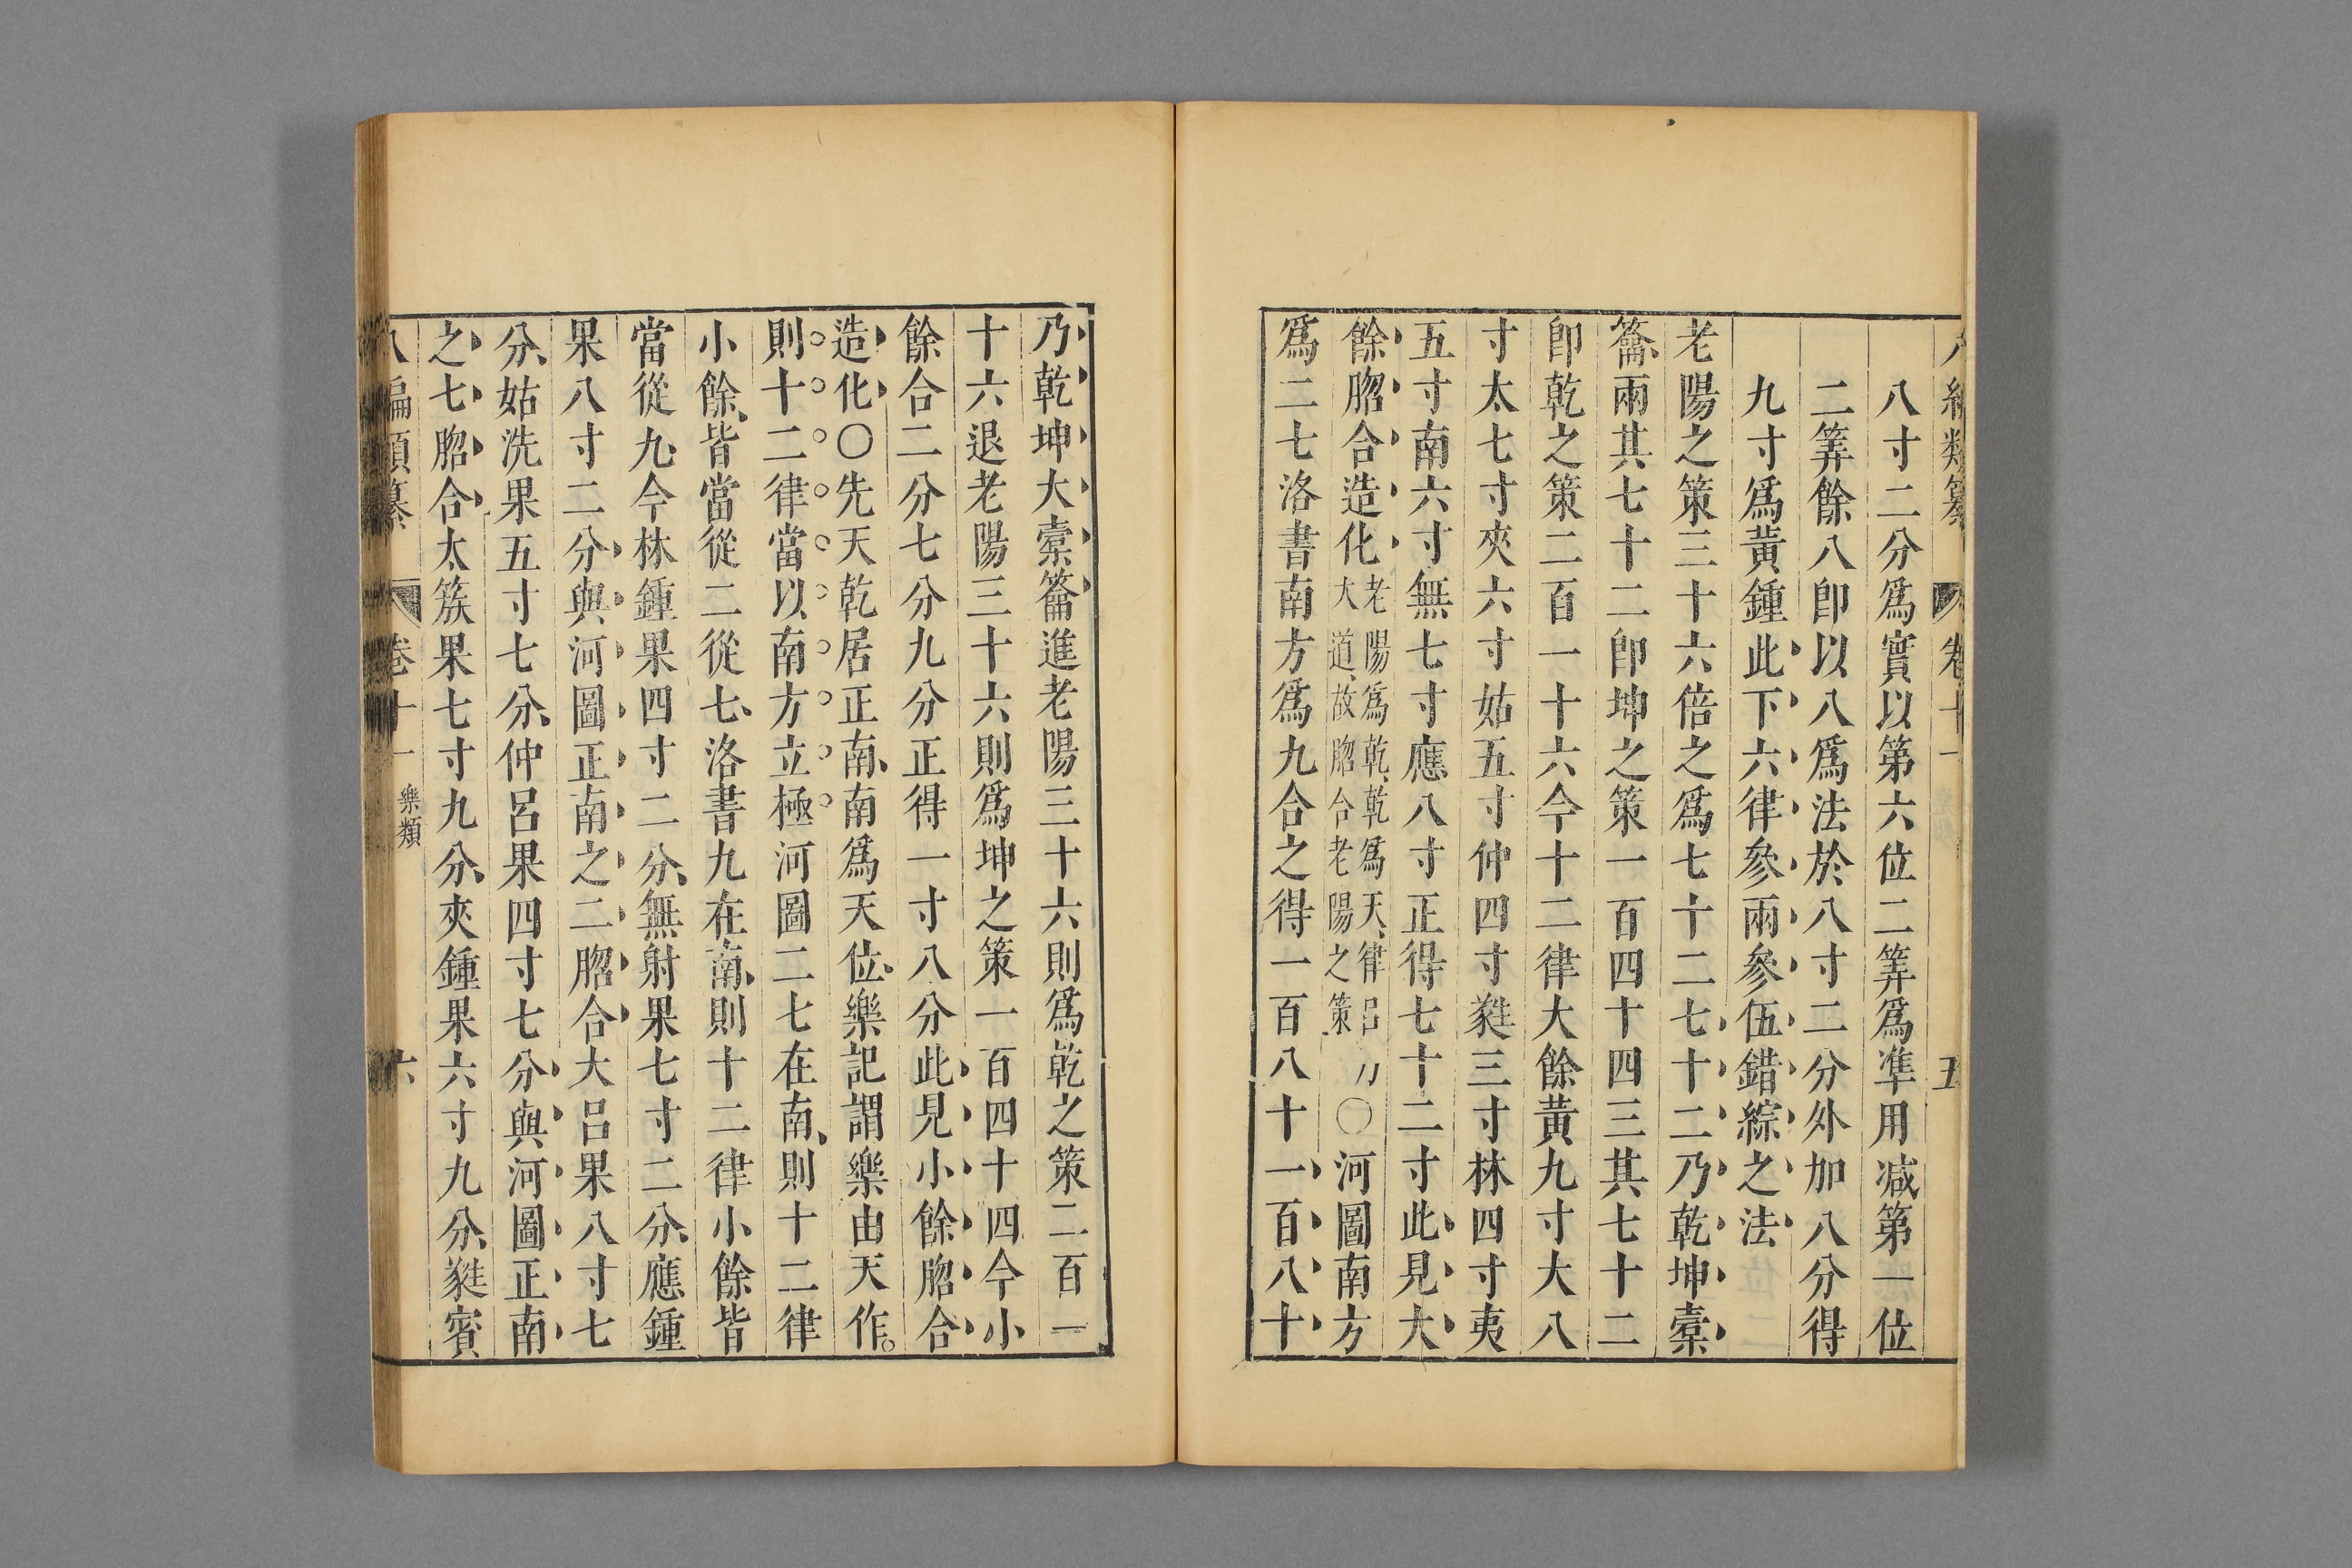 八編類纂 卷十一 五
八寸二分爲實以第六位二筭爲準用減第一位
二筭餘八卽以八爲法於八寸二分外加八分得
九寸爲黃鍾此下六律參兩參伍錯綜之法
老陽之策三十六倍之爲七十二七十二乃乾坤橐
籥兩其七十二卽坤之策一百四十四三其七十二
卽乾之策二百一十六今十二律大餘黃九寸大八
寸太七寸夾六寸姑五寸仲四寸蕤三寸林四寸夷
五寸南六寸無七寸應八寸正得七十二寸此見大
餘脗合造化老陽爲乾乾爲天律呂
大道故脗合老陽之策〇河圖南方
爲二七洛書南方爲九合之得一百八十一百八十
乃乾坤大橐籥進老陽三十六則爲乾之策二百一
十六退老陽三十六則爲坤之策一百四十四今小
餘合二分七分九分正得一寸八分此見小餘脗合
造化〇先天乾居正南南爲天位樂記謂樂由天作
則十二律當以南方立極河圖二七在南則十二律
小餘皆當從二從七洛書九在南則十二律小餘皆
當從九今林鍾果四寸二分無射果七寸二分應鍾
果八寸二分與河圖正南之二脗合大呂果八寸七
分姑洗果五寸七分仲呂果四寸七分與河圖正南
之七脗合太簇果七寸九分夾鍾果六寸九分蕤賓
八編類纂 卷十一 樂類 六